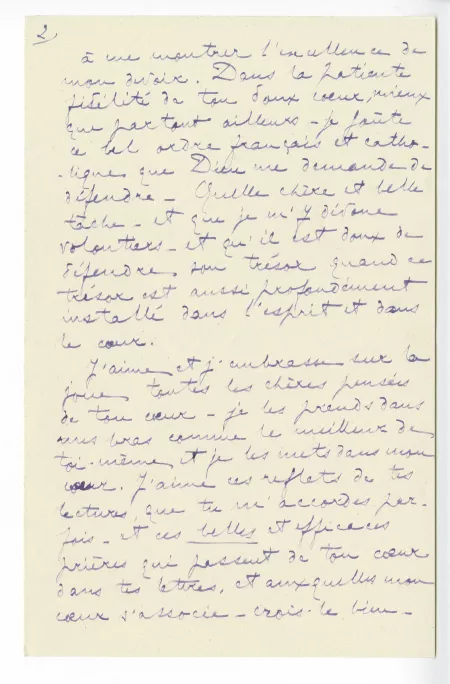 2.
à me montrer l'excellence de
mon devoir. Dans la patiente
fidélité de ton doux cœur, mieux
que partout ailleurs - je goûte
ce bel ordre français et catho-
-lique que Dieu me demande de
défendre - Quelle chère et belle
tâche - et que je m'y dévoue
volontiers - et qu'il est doux de
défendre son trésor quand ce
trésor est aussi profondément
installé dans l'esprit et dans
le cœur.
J'aime et j'embrasse sur la
joue toutes les chères pensées
de ton cœur - je les prends dans
mes bras comme le meilleur de
toi-même et je les mets dans mon
cœur. J'aime ces reflets de tes
lectures, que tu m'accordes par-
fois - et ces belles et efficaces
prières qui passent de ton cœur
dans tes lettres, et auxquelles mon
cœur s'associe - crois-le bien -